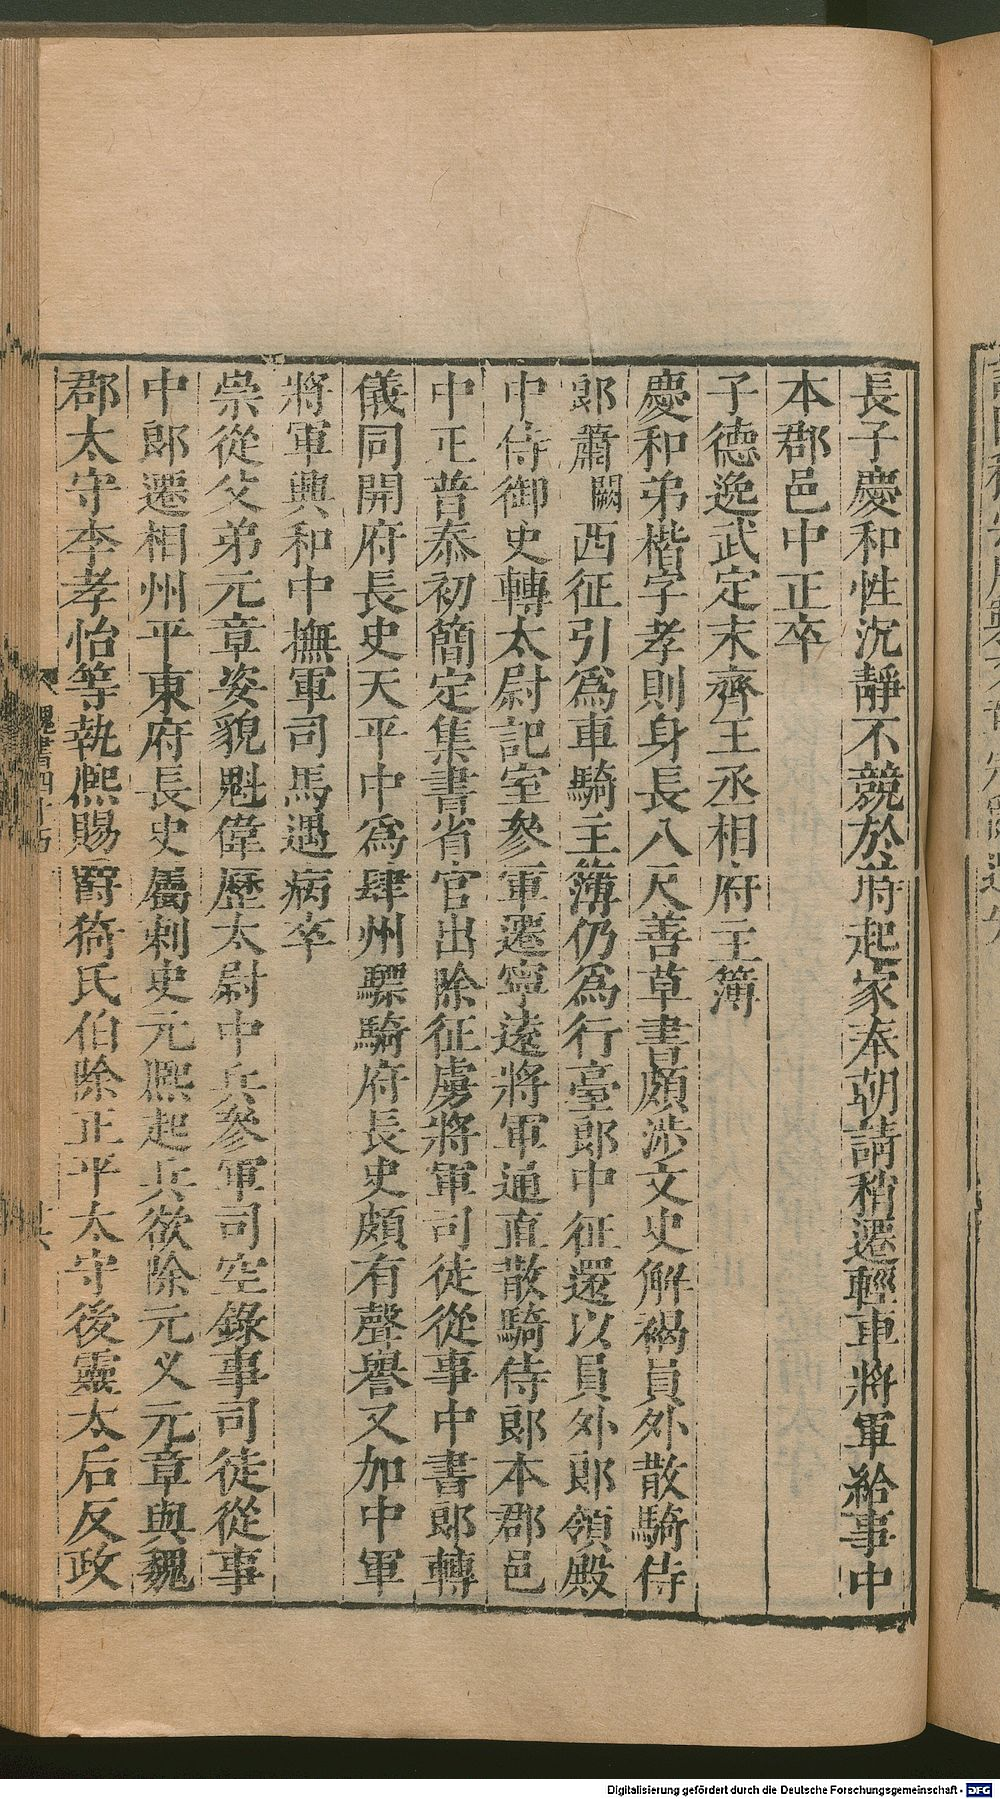 長子慶和性沉靜不競於時起家奉朝請稍遷輕車將軍給事中
本郡邑中正卒
子德逸武定末齊王丞相府主簿
慶和弟楷字孝則身長八尺善草書頗涉文史解褐員外散騎侍
郎蕭闕西征引爲車騎主簿仍爲行臺郎中征還以員外郎領殿
中侍御史轉太尉記室參軍遷寧遠將軍通直散騎侍郎本郡邑
中正普泰初簡定集書省官出除征虜將軍司徒從事中書郎轉
儀同開府長史天平中爲肆州驃騎府長史頗有聲譽又加中軍
將軍興和中撫軍司馬遇病卒
崇從父弟元章姿貌魁偉歷太尉中兵參軍司空錄事司徒從事
中郎遷相州平東府長史屬刺史元熙起兵欲除元义元章與魏
郡太守李孝怡等執熙賜爵猗氏伯除正平太守後靈太后反政
魏書四十五
Digitalisierung gefördert durch die Deutsche Forschungsgemeinschaft - DFG